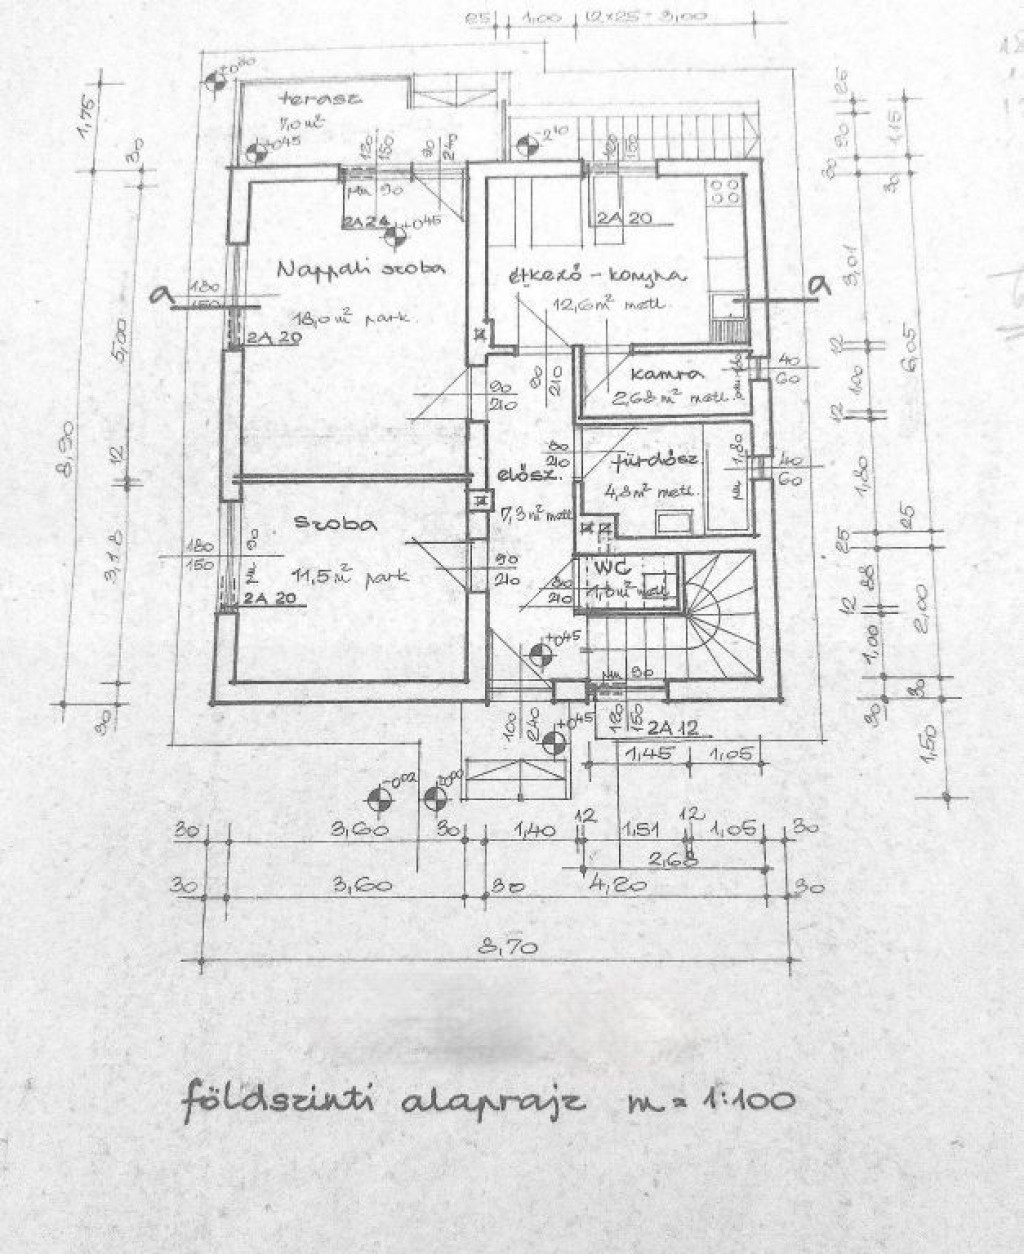 25 1,00 12x25=3,00
±0,00
terasz
7,0 m²
+0,45
-2,10
120
150
90
240
120
150
pm 90
2A 24
+0,45
2A 20
Nappali szoba
18,0 m² park.
étkező - konyha
12,6 m² metl.
a
180
150
2A 20
a
90
210
90
210
kamra
2,68 m² metl.
40
60
80
210
fürdősz.
4,8 m² metl.
40
60
elősz.
7,3 m² metl.
szoba
11,5 m² park
180
150
pm 90
2A 20
90
210
WC
80
210
+0,45
pm 90
100
240
+0,45
120
150
2A 12
1,45 1,05
-0,02
1,75
30
5,00
8,90
12
3,18
30
25
90
30
115
30
3,01
12
6,05
1,00
12
1,80
25
25
88
12
2,00
1,00
30
30
1,50
30 3,60 30 1,40 12 1,51 12 1,05 30
2,68
30 3,60 30 4,20 30
8,70
földszinti alaprajz m = 1:100